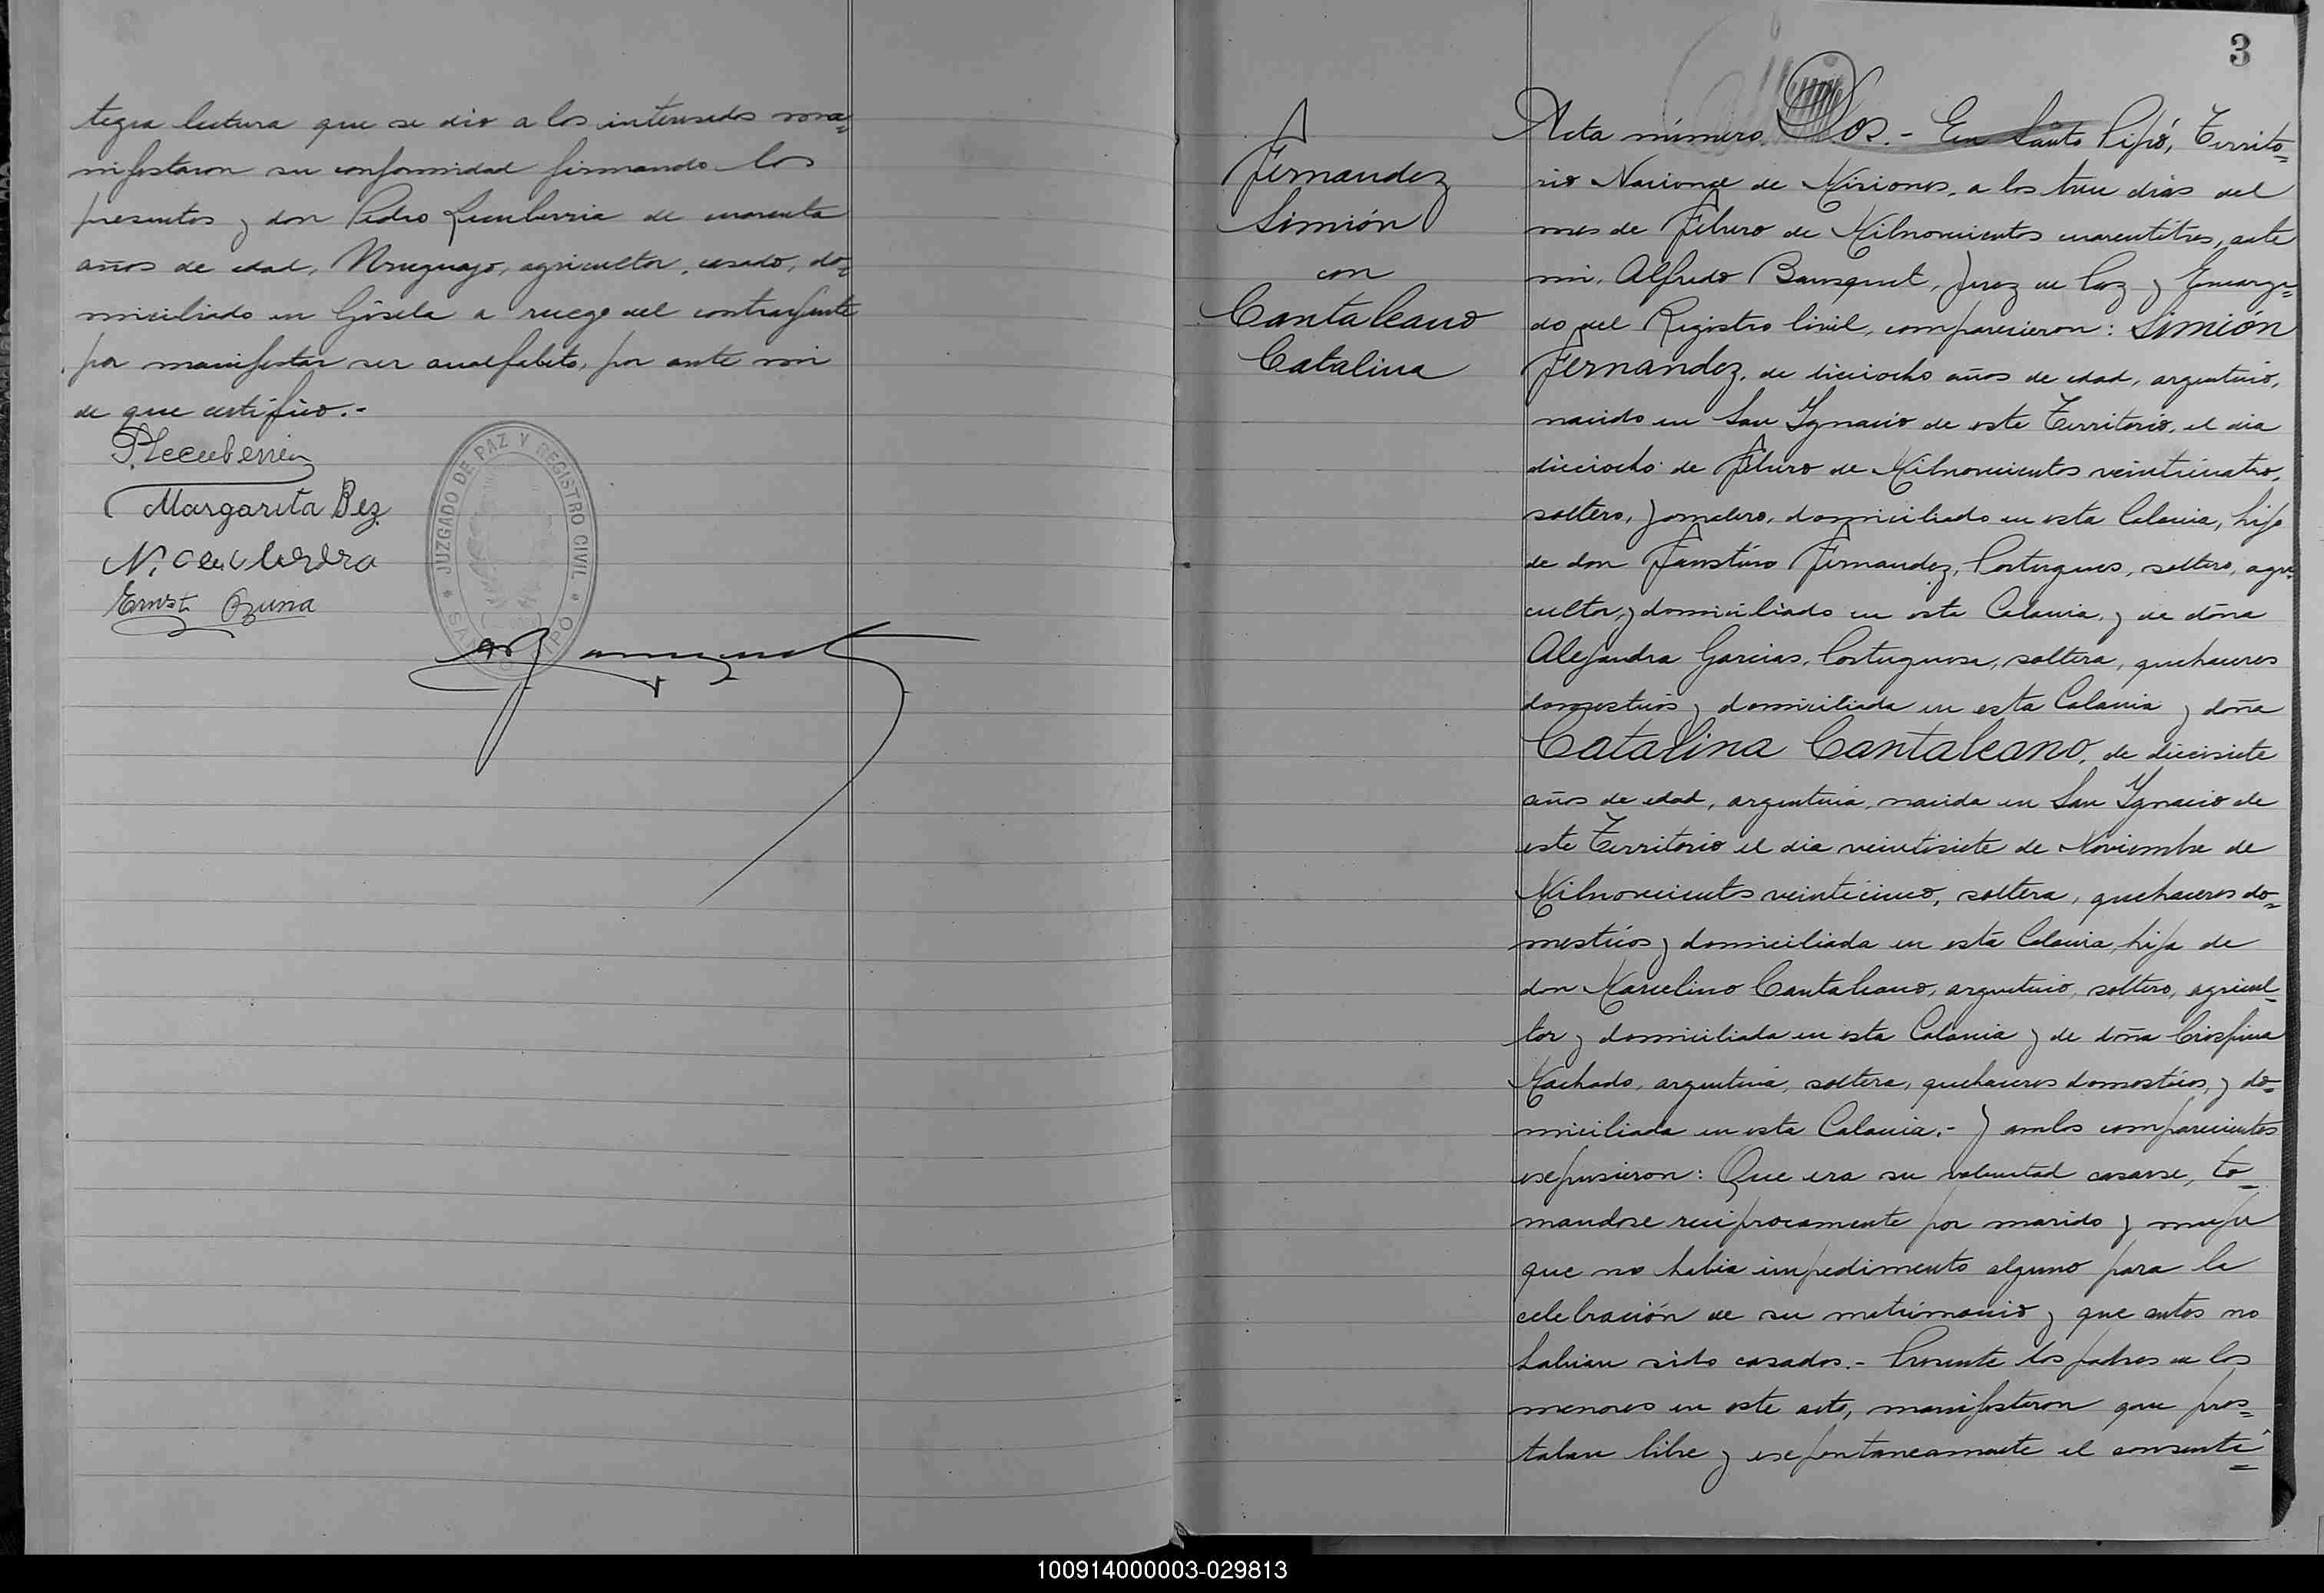 tegra lectura que se dió a los interesados ma=
nifestaron su conformidad firmando los
presentes y don Pedro Lecuberria de cuarenta
años de edad, Uruguayo, agricultor, casado, do=
miciliado en Gisela a ruego del contrayente
por manifestar ser analfabeto, por ante mi
de que certifico.-
P. Lecuberria
Margarita Bez
Ernst
JUZGADO DE PAZ Y REGISTRO CIVIL
SANTO PIPO
3
Fernandez
Simión
con
Cantaleano
Catalina
Acta número Dos.- En Santo Pipó, Territo=
rio Nacional de Misiones, a los trece dias del
mes de Febrero de Milnovecientos cuarentitres, ante
mi, Alfredo Bausquet, Juez de Paz y Encarga=
do del Registro Civil, comparecieron: Simión
Fernandez, de dieciocho años de edad, argentino,
nacido en San Ygnacio de este Territorio, el dia
dieciocho de Febrero de Milnovecientos veinticuatro,
soltero, jornalero, domiciliado en esta Colonia, hijo
de don Faustino Fernandez, Portugues, soltero, agri=
cultor, y domiciliado en esta Colonia, y de doña
Alejandra Garcias, Portuguesa, soltera, quehaceres
domesticos y domiciliada en esta Colonia y doña
Catalina Cantaleano, de diecisiete
años de edad, argentina, nacida en San Ygnacio de
este Territorio el dia veintisiete de Noviembre de
Milnovecientos veinticinco, soltera, quehaceres do=
mesticos y domiciliada en esta Colonia, hija de
don Marcelino Cantaleano, argentino, soltero, agricul=
tor y domiciliada en esta Colonia y de doña Crispina
Machado, argentina, soltera, quehaceres domesticos, y do=
miciliada en esta Colonia.- Y ambos comparecientes
expusieron: Que era su voluntad casarse, to=
mandose reciprocamente por marido y mujer
que no habia impedimento alguno para la
celebración de su matrimonio y que antes no
habian sido casados.- Presente los padres de los
menores en este acto, manifestaron que pres=
taban libre y expontaneamente el consenti=
100914000003-029813